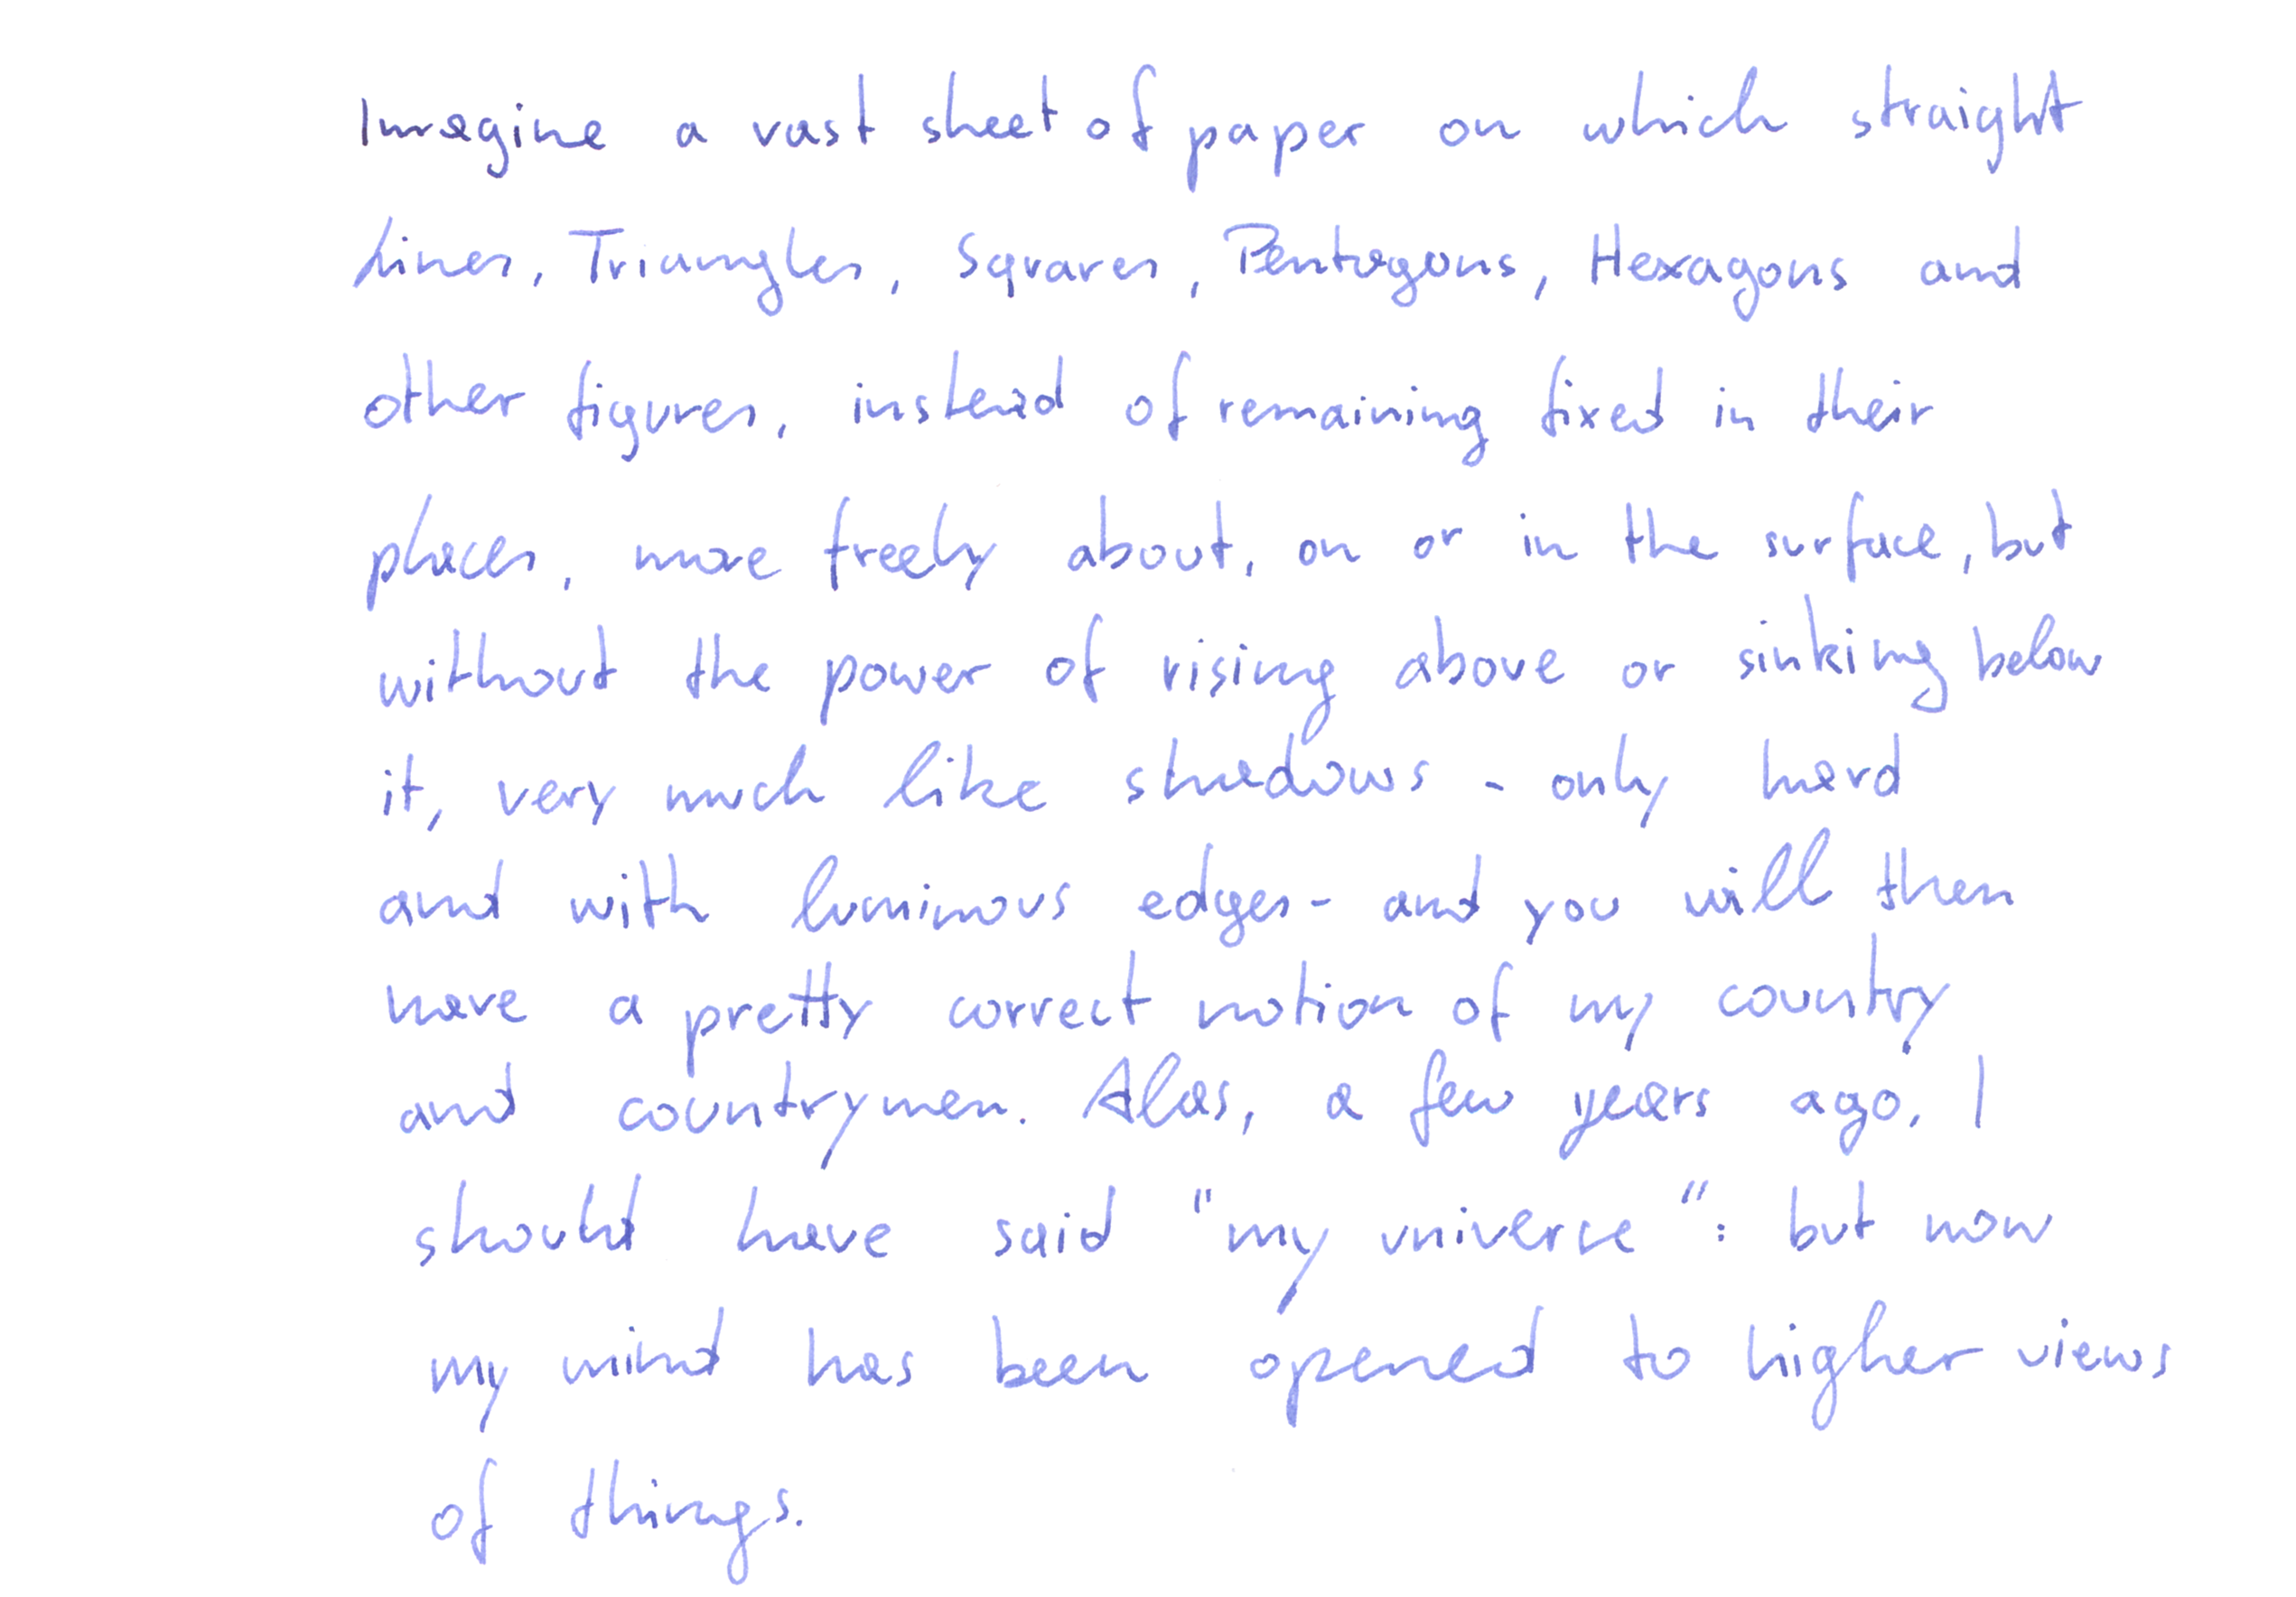 Imagine a vast sheet of paper on which straight
Lines, Triangles, Squares, Pentagons, Hexagons and
other figures, instead of remaining fixed in their
places, move freely about, on or in the surface, but
without the power of rising above or sinking below
it, very much like shadows - only hard
and with luminous edges - and you will then
have a pretty correct notion of my country
and countrymen. Alas, a few years ago, I
should have said "my universe": but now
my mind has been opened to higher views
of things.